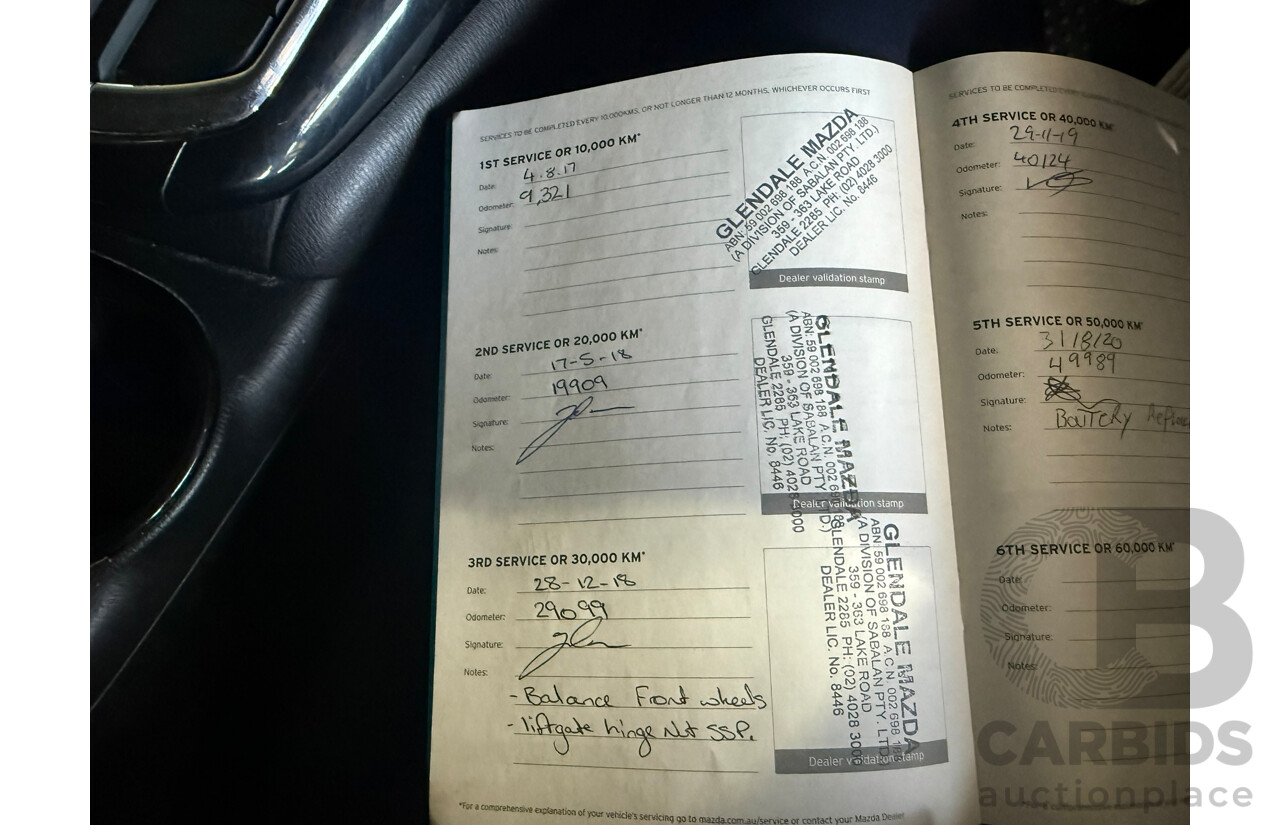 SERVICES TO BE COMPLETED EVERY 10,000KMS, OR NOT LONGER THAN 12 MONTHS, WHICHEVER OCCURS FIRST
1ST SERVICE OR 10,000 KM*
Date: 4.8.17
Odometer: 9,321
Signature:
Notes:
GLENDALE MAZDA
ABN: 59 002 698 188 A.C.N. 002 698 188
(A DIVISION OF SABALAN PTY. LTD.)
359 - 363 LAKE ROAD
GLENDALE 2285 PH: (02) 4028 3000
DEALER LIC. No. 8446
Dealer validation stamp
2ND SERVICE OR 20,000 KM*
Date: 17-5-18
Odometer: 19909
Signature:
Notes:
GLENDALE MAZDA
ABN: 59 002 698 188 A.C.N. 002 698 188
(A DIVISION OF SABALAN PTY. LTD.)
359 - 363 LAKE ROAD
GLENDALE 2285 PH: (02) 4028 3000
DEALER LIC. No. 8446
Dealer validation stamp
3RD SERVICE OR 30,000 KM*
Date: 28-12-18
Odometer: 29099
Signature:
Notes:
- Balance Front wheels
- liftgate hinge Nut SSP.
GLENDALE MAZDA
ABN: 59 002 698 188 A.C.N. 002 698 188
(A DIVISION OF SABALAN PTY. LTD.)
359 - 363 LAKE ROAD
GLENDALE 2285 PH: (02) 4028 3000
DEALER LIC. No. 8446
Dealer validation stamp
*For a comprehensive explanation of your vehicle's servicing go to mazda.com.au/service or contact your Mazda Dealer
SERVICES TO BE COMPLETED
4TH SERVICE OR 40,000 KM*
Date: 29-11-19
Odometer: 40124
Signature:
Notes:
5TH SERVICE OR 50,000 KM*
Date: 31/8/20
Odometer: 49989
Signature:
Notes: Battery
6TH SERVICE OR 60,000 KM*
Date:
Odometer:
Signature:
Notes:
CARBIDS
auctionplace